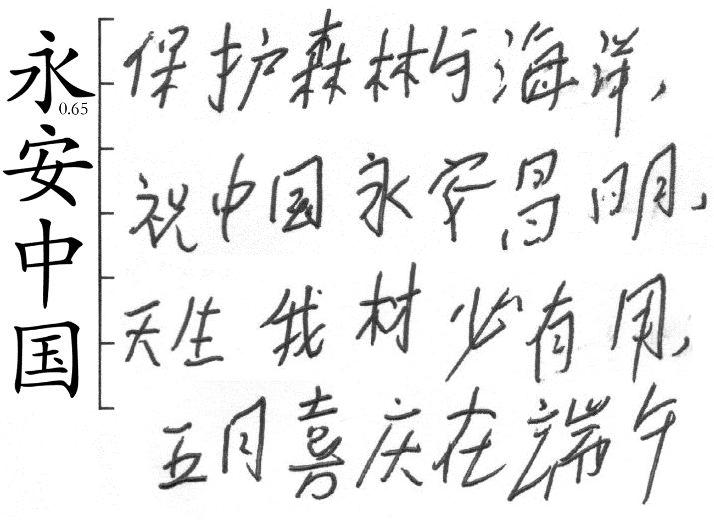 永安中国
0.65
保护森林与海洋，
祝中国永安昌明，
天生我材必有用，
五月喜庆在端午